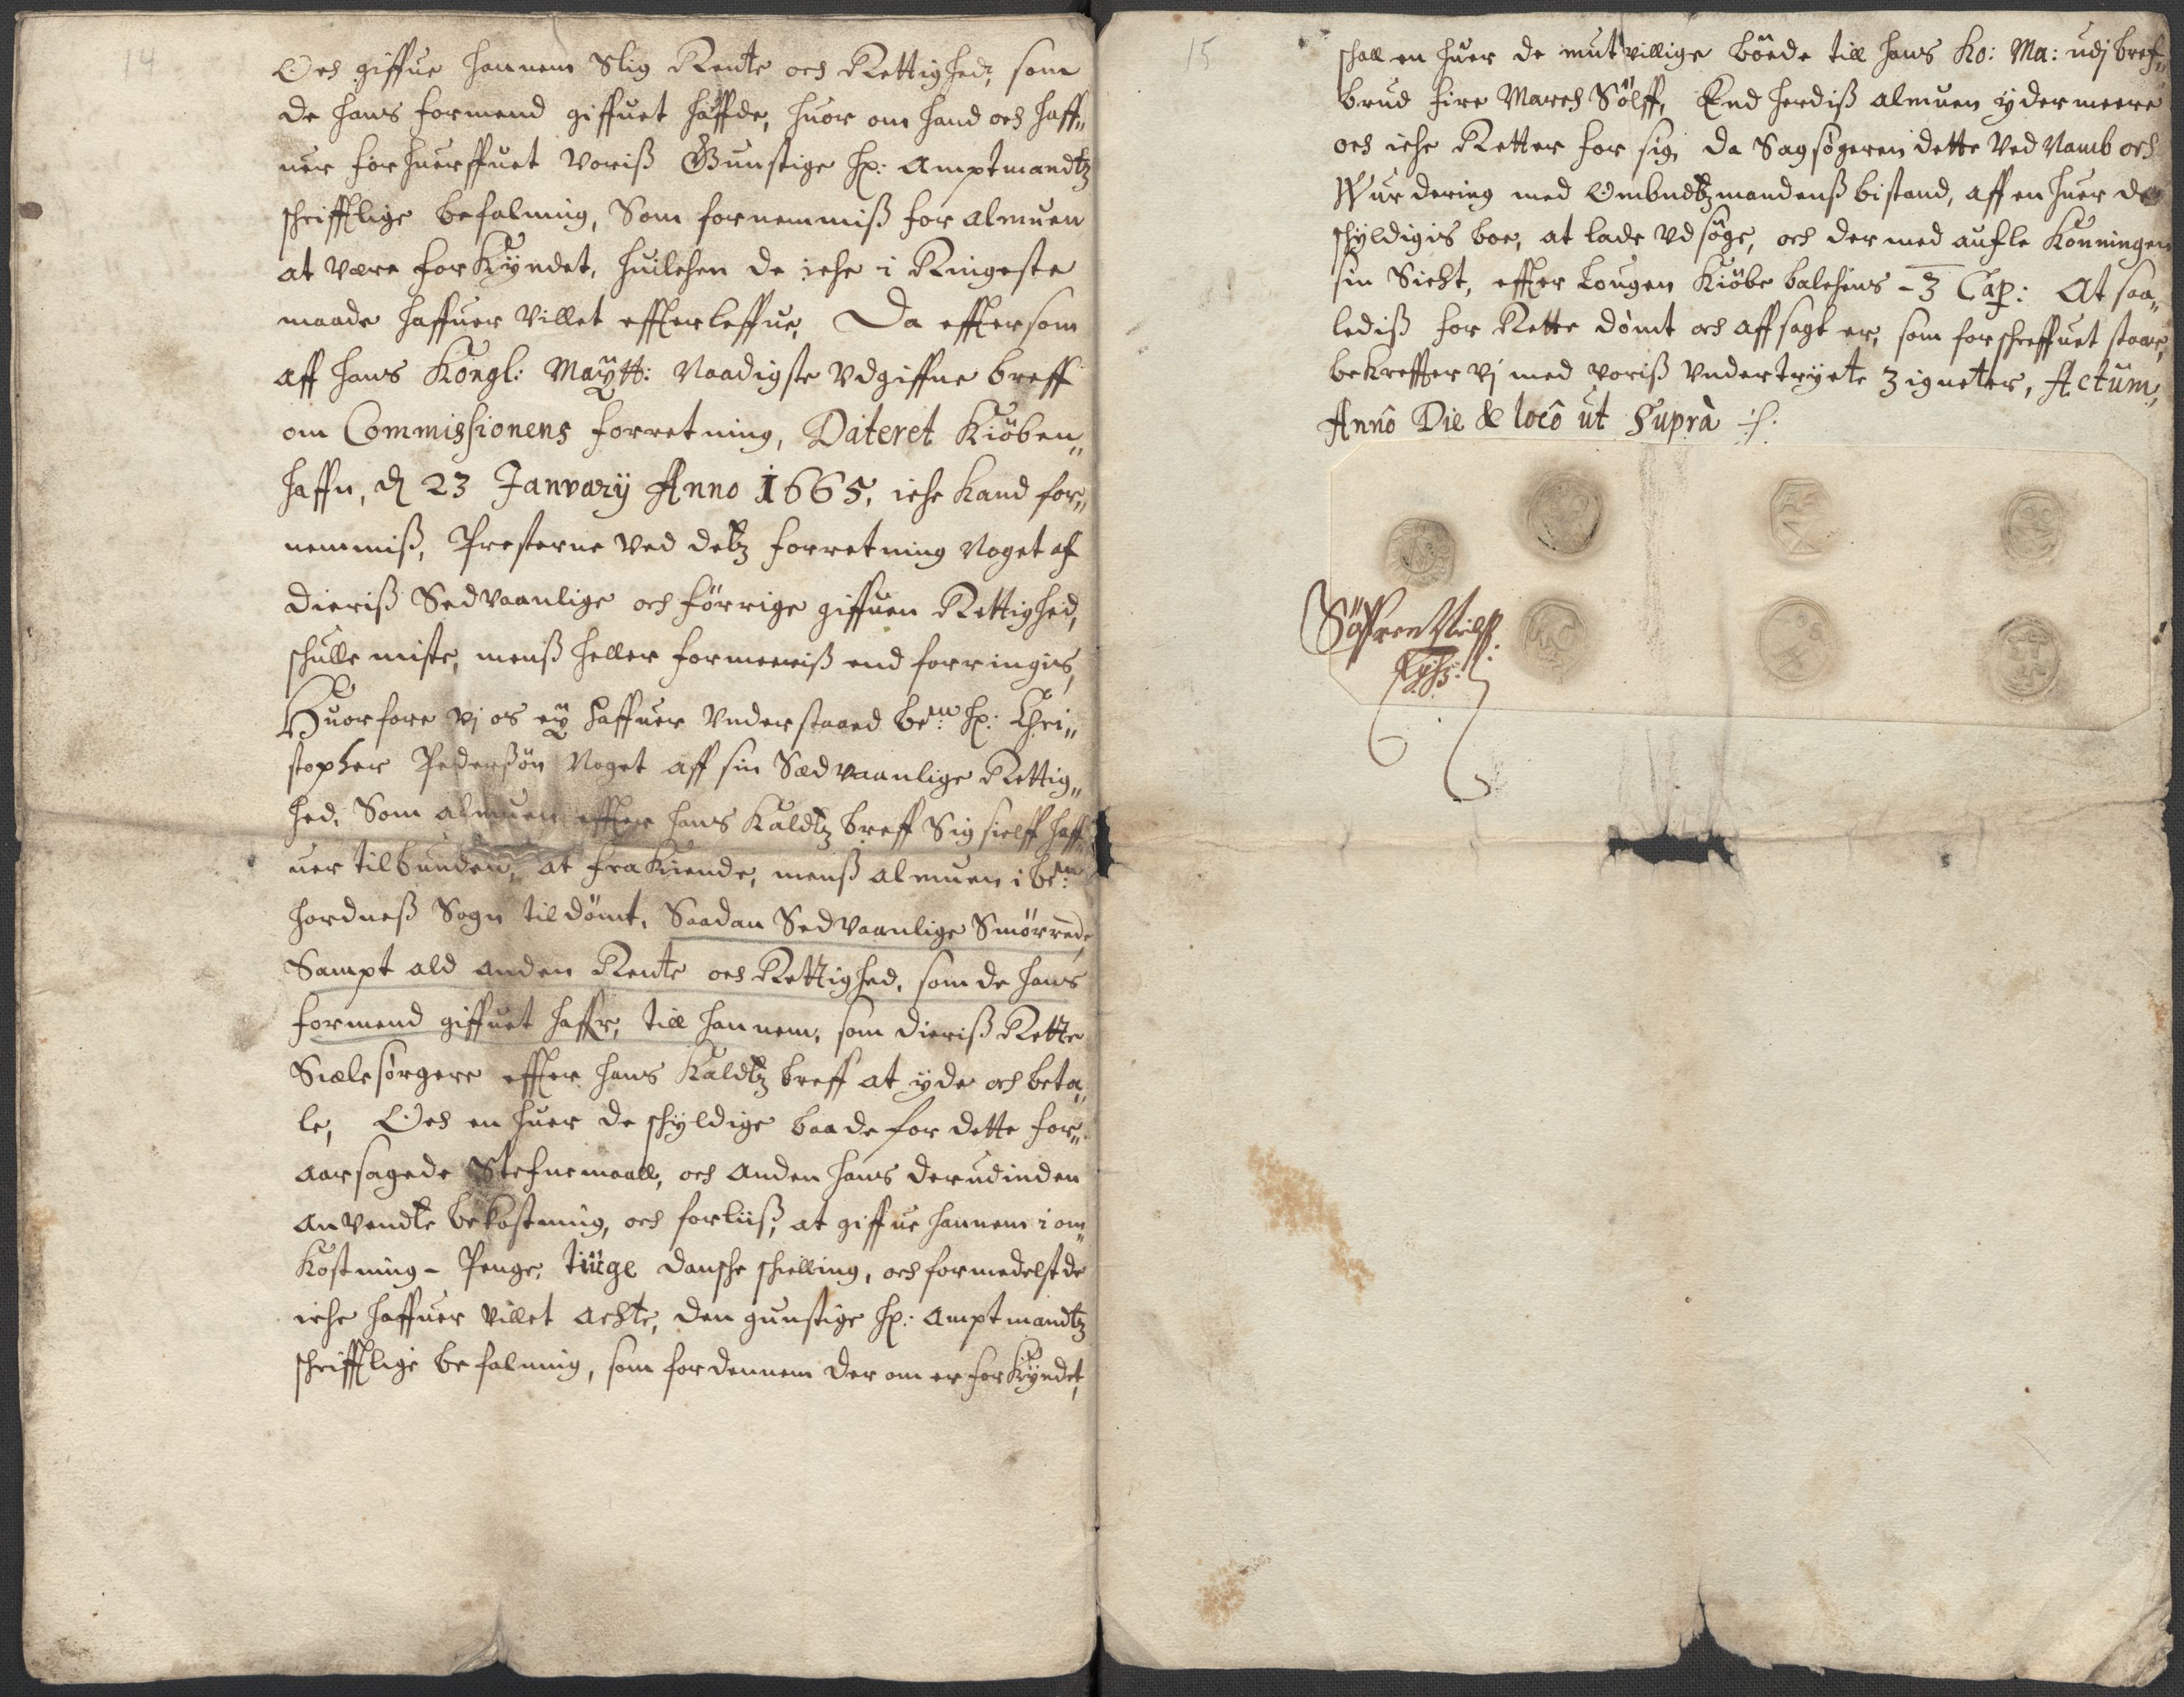 14
Och giffue hannem Slig Rente och Rettighed, som
de hans formend giffuet haffde, huor om hand och haff„
uer forhuerffuet voriß Gunstige Hr: Amptmandtz
schrifftlige befalning, Som fornemmiß for almuen
at være forKyndet, huilchen de iche i Ringeste
maade haffuer villet effterleffue, Da effttersom
aff hans Kongl: Maÿtt: Naadigste Vdgiffne breff
om Commissionens forretning, Dateret Kiöben„
haffn, d 23 Janvarÿ Anno 1665, iche kand for„
nemmiß, Presterne ved detz forretning Noget af
dieriß Sedvaanlige och förrige giffuen Rettighed,
schulle miste, menß heller formeeriß end forringis,
Huorfore vj os eÿ haffuer Vnderstaaed beme: Hr: Chri„
stopher Pederßön Noget aff sin Sædvaanlige Rettig„
hed, Som almuen effter hans Kaldtz breff Sig sielff haff„
uer tilbunden, at fraKiende, menß almuen i ben:
Hordneß Sogn tildömt, Saadan Sedvaanlige Smörrede
Sampt ald anden Rente och Rettighed, som de hans
formend giffuet haffr, till hannem, som dieriß Rette
Siælesörgere effter hans Kaldtz breff at yde och beta„
le, Och en huer de schyldige baade for dette for„
aarsagede Stefnemaall, och anden hans derudinden
anvendte bekostning, och forliiß, at giffue hannem i om„
Kostning - Penge, tüge dansche schielling, och formedelst de
iche haffuer villet achte, den gunstige Hr: Amptmandtz
schrifftlige befalning, som for dennem der om er forKyndet,
15
schall en huer de mutvillige böede till hans Ko: Ma: udj bref„
brud fire March Sölff, End herdiß almuen ydermeere
och iche Retter for sig, da Sagsögeren dette Ved Namb och
Wurdering med Ombudtzmandenß bistand, aff en huer de
schyldigis boe, at lade Vdsöge, och der med aufle Konningen
sin Sicht, effter Lougen Kiöbe balchens - 3 Cap: At saa„
lediß for Rette dömt och affsagt er, som forschreffuet staar,
bekreffter vj med voriß Vndertryckte Zigneter, Actum,
Anno Die & loco ut Supra
Söffren Nielß: